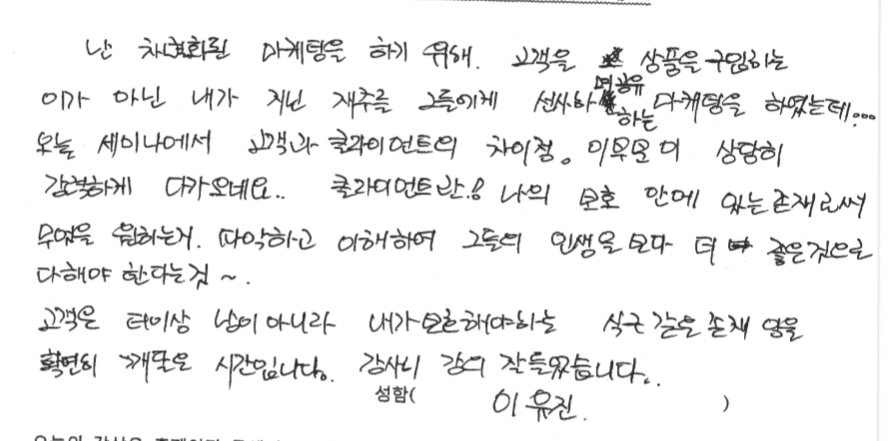 난 차별화된 마케팅을 하기 위해. 고객을 상품을 구입하는
이가 아닌 내가 지닌 재주를 그들에게 선사하며 공유하는 마케팅을 하였는데...
오늘 세미나에서 고객과 클라이언트의 차이점. 이부분이 상당히
강렬하게 다가오네요.. 클라이언트란! 나의 보호 안에 있는 존재로써
무엇을 원하는거. 파악하고 이해하여 그들의 인생을 보다 더 좋은것으로
다해야 한다는것 ~.
고객은 더이상 남이 아니라 내가 보호해야하는 식구 같은 존재 임을
확연히 깨달은 시간입니다. 감사히 강의 잘들었습니다..
성함( 이유진. )